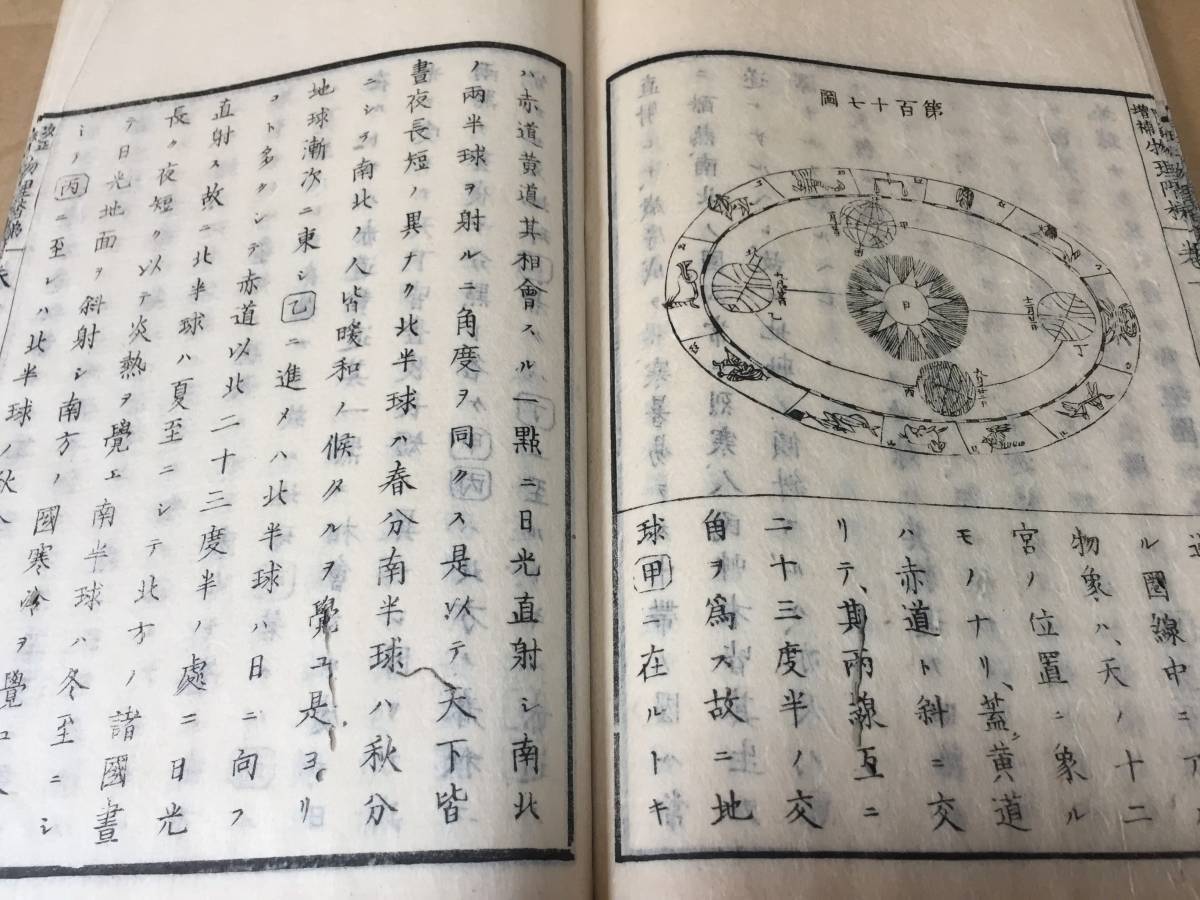 第百十七圖
ル國線中ニ
物象ハ、天ノ十二
宮ノ位置ニ象ル
モノナリ、蓋黄道
ハ赤道ト斜ニ交
リテ、期兩線互ニ
二十三度半ノ交
角ヲ爲ス故ニ地
球甲ニ在ルトキ
ハ赤道黄道其相會スル二點ニ日光直射シ南北
ノ兩半球ヲ射ルニ角度ヲ同クス是以テ天下皆
晝夜長短ノ異ナク北半球ハ春分南半球ハ秋分
ニシテ南北ノ人皆暖和ノ候タルヲ覺ユ是ヨリ
地球漸次ニ東シ乙ニ進メハ北半球ハ日ニ向フ
コト多クシテ赤道以北二十三度半ノ處ニ日光
直射ス故ニ北半球ハ夏至ニシテ北方ノ諸國晝
長ク夜短ク以テ炎熱ヲ覺エ南半球ハ冬至ニシ
テ日光地面ヲ斜射シ南方ノ國寒冷ヲ覺ユ
シノ丙ニ至レハ北半球ノ秋